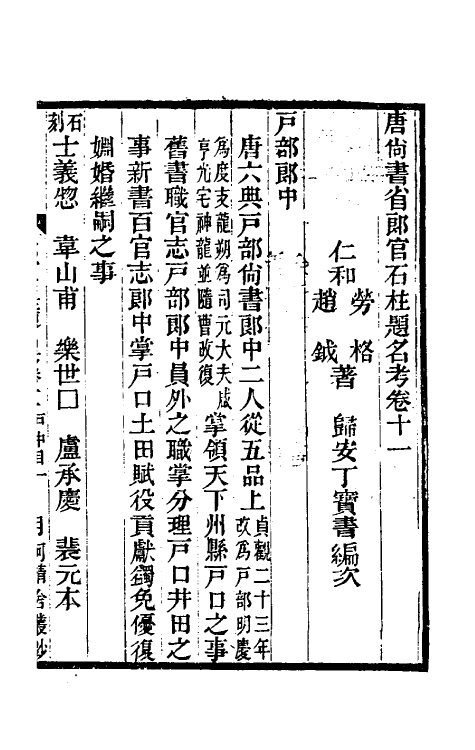 唐尙書省郞官石柱題名考卷十一
仁和 勞格 趙鉞 著 歸安丁寶書編次
戶部郞中
唐六典戶部尙書郞中二人從五品上貞觀二十三年改爲戶部明慶
爲度支龍朔爲司元大夫咸亨光宅神龍並隨曹改復掌領天下州縣戶口之事
舊書職官志戶部郞中員外之職掌分理戶口井田之
事新書百官志郞中掌戶口土田賦役貢獻蠲免優復
婣婚繼嗣之事
石刻士義惣 韋山甫 樂世囗 盧承慶 裴元本
月河精舍叢鈔